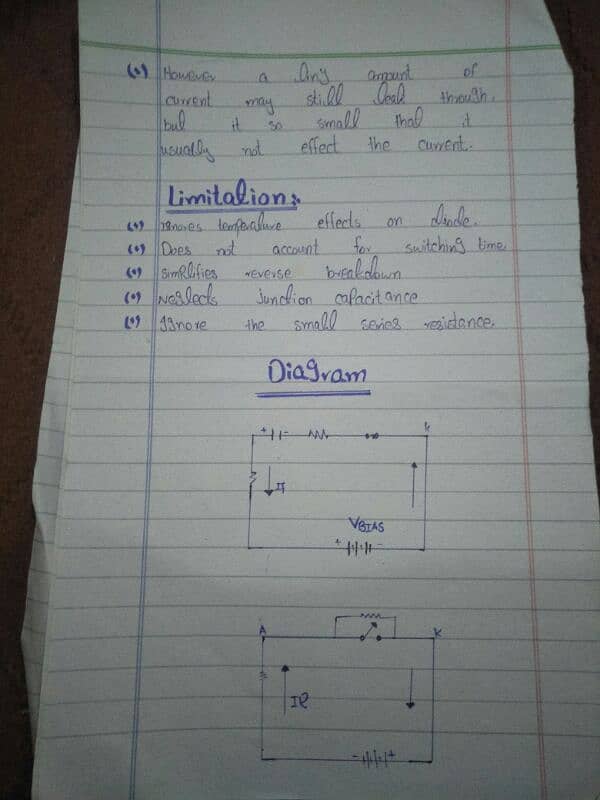 (•) However a tiny amount of
current may still leak through.
but it so small that it
usually not effect the current.
Limitation:
(•) Ignores temperature effects on diode.
(•) Does not account for switching time
(•) Simplifies reverse breakdown
(•) Neglects junction capacitance
(•) Ignore the small series resistance.
Diagram
+ - k
If
VBIAS
+ -
A K
IR
- +